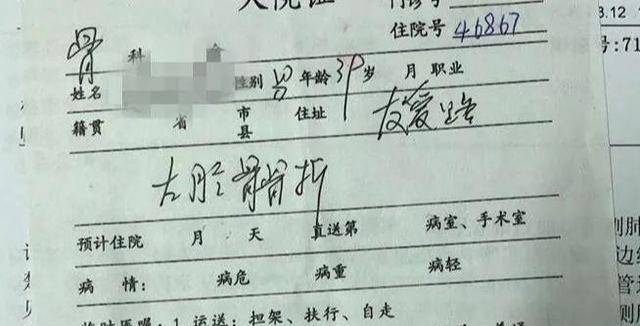 入院证 门诊号
住院号 46867
骨 科
姓名 性别 男 年龄 39 岁 月 职业
籍贯 省 市县 住址 友爱路
左胫骨骨折
预计住院 月 天 直送第 病室、手术室
病 情: 病危 病重 病轻
临时医嘱: 1 运送: 担架、扶行、自走
3.12
号:71